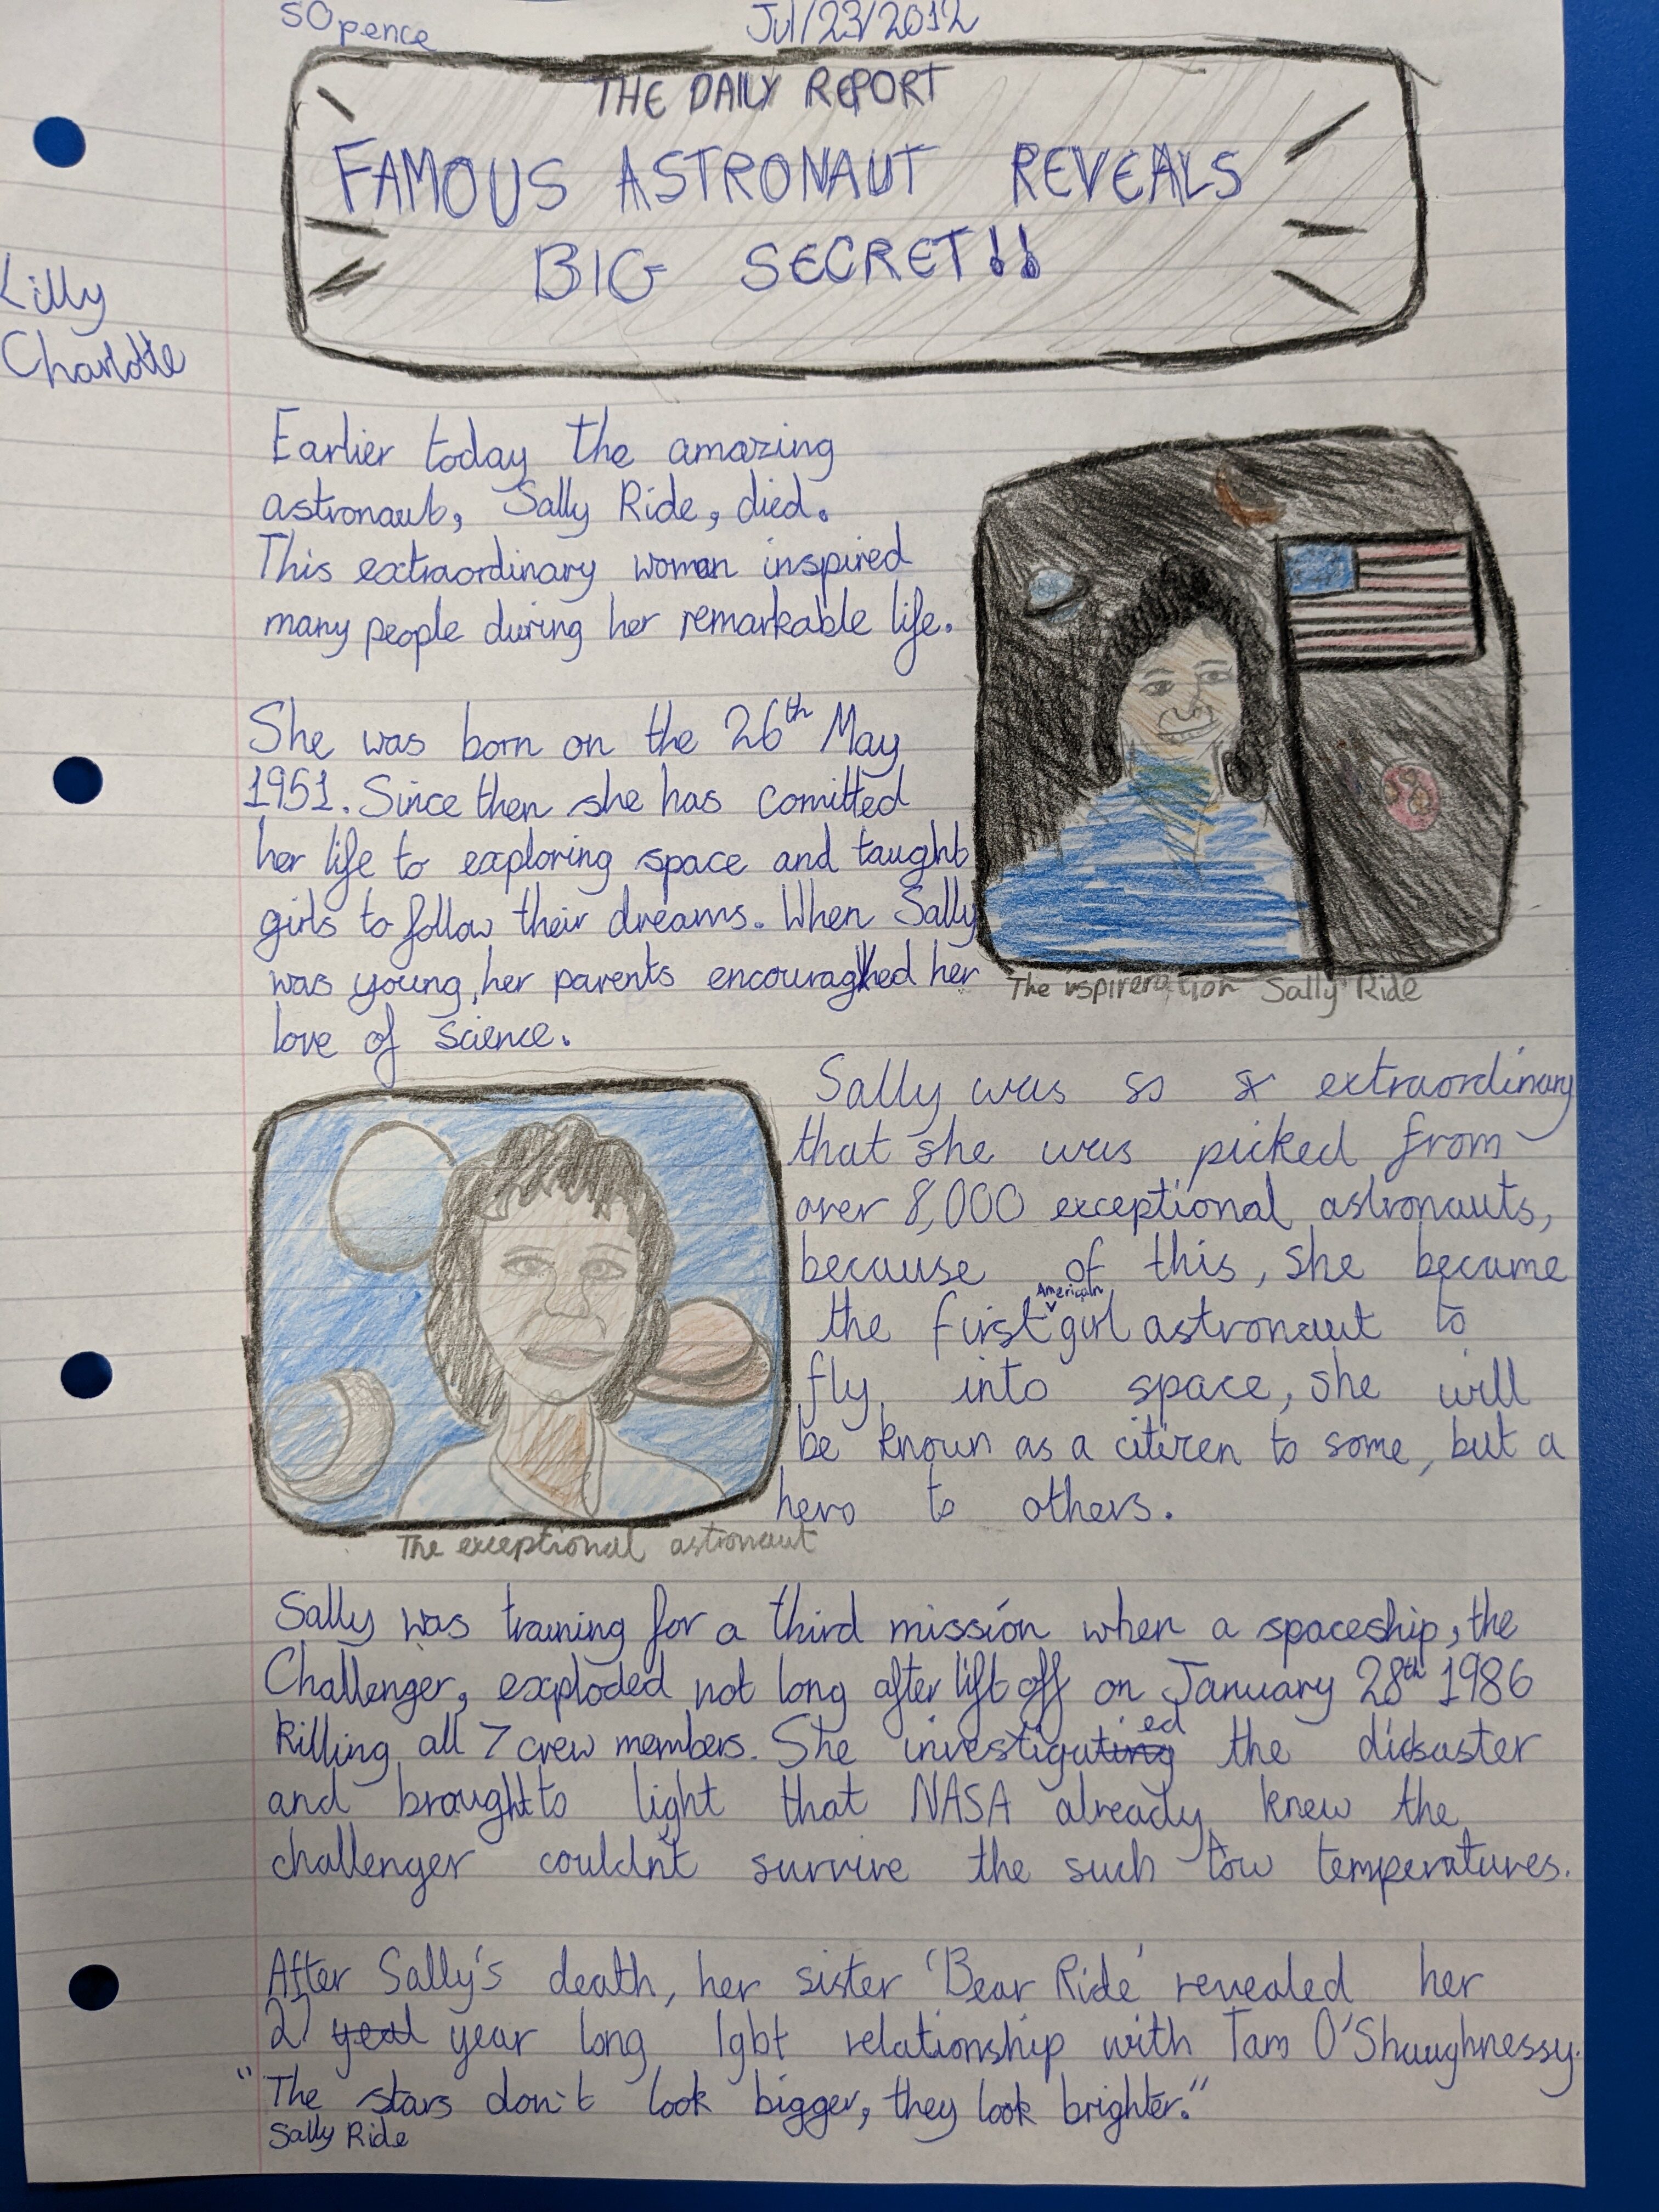 50pence Jul/23/2012
THE DAILY REPORT
FAMOUS ASTRONAUT REVEALS
BIG SECRET!!
Lilly
Charlotte
Earlier today the amazing
astronaut, Sally Ride, died.
This extraordinary woman inspired
many people during her remarkable life.
She was born on the 26th May
1951. Since then she has comitted
her life to exploring space and taught
girls to follow their dreams. When Sally
was young, her parents encouraged her
love of science.
The Sally Ride
Sally was so extraordinary
that she was picked from
over 8,000 exceptional astronauts,
because of this, she became
the first American girl astronaut to
fly into space, she will
be known as a citizen to some, but a
hero to others.
The exceptional astronaut
Sally was training for a third mission when a spaceship, the
Challenger, exploded not long after lift off on January 28th 1986
killing all 7 crew members. She investigated the disaster
and brought to light that NASA already knew the
challenger couldn't survive the such low temperatures.
After Sally's death, her sister 'Bear Ride' revealed her
27 year long lgbt relationship with Tam O'Shaughnessy.
"The stars don't look bigger, they look brighter."
Sally Ride